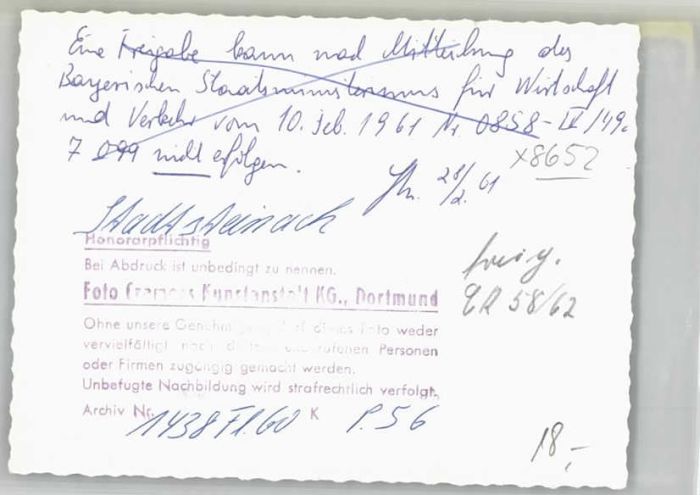 Eine Freigabe kann nach Mitteilung des
Bayerischen Staatsministeriums für Wirtschaft
und Verkehr vom 10. Feb. 1961 Nr. 0858-IV/49c
7 099 nicht erfolgen.
x8652
28/2.61
Stadtsteinach
Honorarpflichtig
Bei Abdruck ist unbedingt zu nennen.
Foto Cramers Kunstanstalt KG., Dortmund
Ohne unsere Genehmigung darf dieses Foto weder
vervielfältigt noch dritten Personen
oder Firmen zugängig gemacht werden.
Unbefugte Nachbildung wird strafrechtlich verfolgt.
Archiv Nr. 1438 Fl.60 K P.56
freig.
GR 58/62
18,-